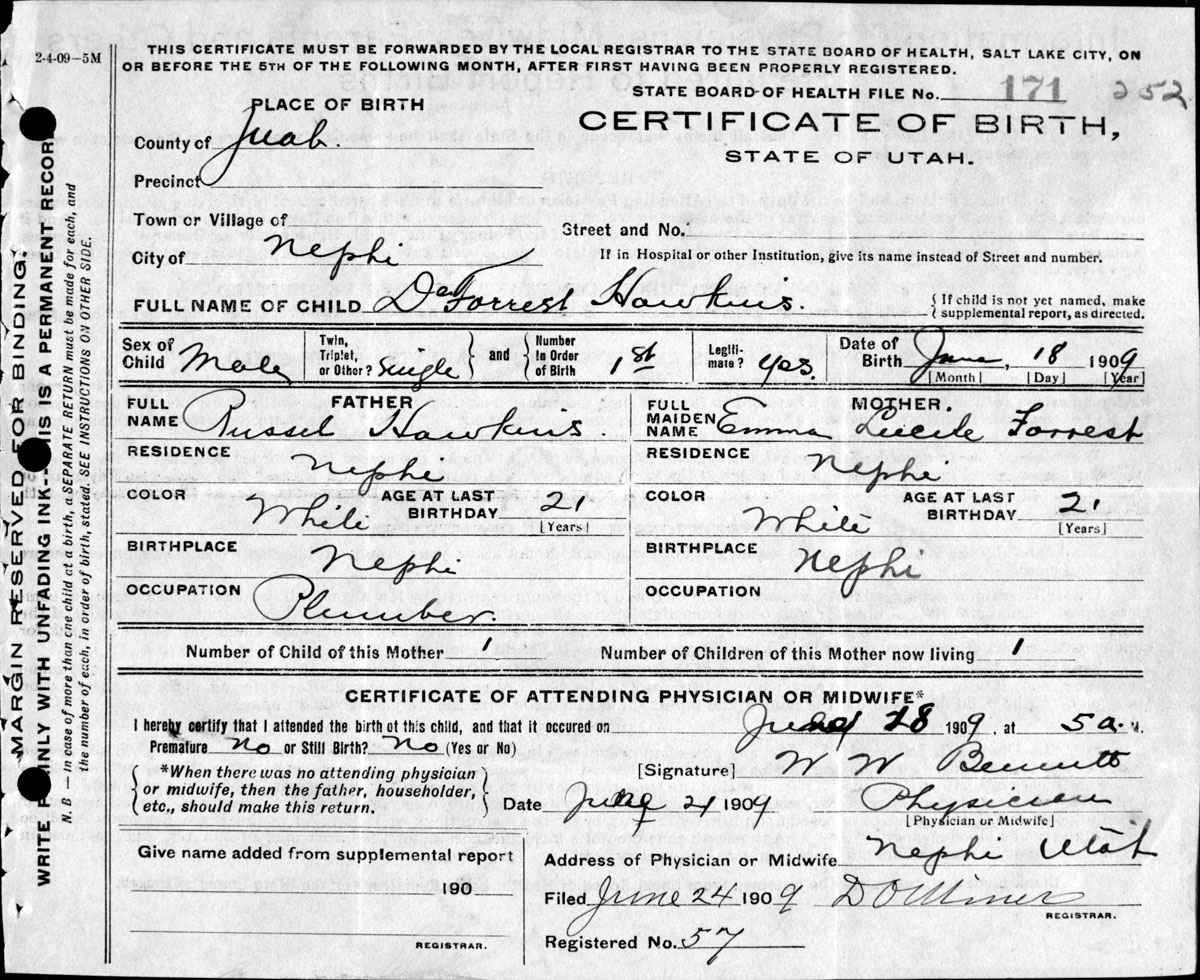 2-4-09—5M
THIS CERTIFICATE MUST BE FORWARDED BY THE LOCAL REGISTRAR TO THE STATE BOARD OF HEALTH, SALT LAKE CITY, ON
OR BEFORE THE 5TH OF THE FOLLOWING MONTH, AFTER FIRST HAVING BEEN PROPERLY REGISTERED.
STATE BOARD OF HEALTH FILE No. 171 252
PLACE OF BIRTH
CERTIFICATE OF BIRTH,
STATE OF UTAH.
County of Juab.
Precinct
Town or Village of
Street and No.
City of Nephi
If in Hospital or other Institution, give its name instead of Street and number.
FULL NAME OF CHILD De Forrest Hawkins.
{ If child is not yet named, make
supplemental report, as directed.
Sex of Child Male
Twin, Triplet, or Other? single } and { Number in Order of Birth 1st
Legiti-mate? yes.
Date of Birth June, 18 1909
[Month] [Day] [Year]
FATHER
FULL NAME Russel Hawkins.
MOTHER.
FULL MAIDEN NAME Emma Lucile Forrest
RESIDENCE Nephi
RESIDENCE Nephi
COLOR White AGE AT LAST BIRTHDAY 21 [Years]
COLOR White AGE AT LAST BIRTHDAY 21 [Years]
BIRTHPLACE Nephi
BIRTHPLACE Nephi
OCCUPATION Plumber.
OCCUPATION
Number of Child of this Mother 1 Number of Children of this Mother now living 1
CERTIFICATE OF ATTENDING PHYSICIAN OR MIDWIFE*
I hereby certify that I attended the birth of this child, and that it occured on 18 1909, at 5 a. M.
Premature No or Still Birth? No (Yes or No)
*When there was no attending physician
or midwife, then the father, householder,
etc., should make this return.
[Signature] W W Bennett
Date 21 1909 Physician
[Physician or Midwife]
Give name added from supplemental report
190
REGISTRAR.
Address of Physician or Midwife Nephi Utah
Filed June 24 1909 D O Miner
REGISTRAR.
Registered No. 57
MARGIN RESERVED FOR BINDING.
WRITE PLAINLY WITH UNFADING INK--THIS IS A PERMANENT RECORD
N. B — In case of more than one child at a birth, a SEPARATE RETURN must be made for each, and
the number of each, in order of birth, stated. SEE INSTRUCTIONS ON OTHER SIDE.